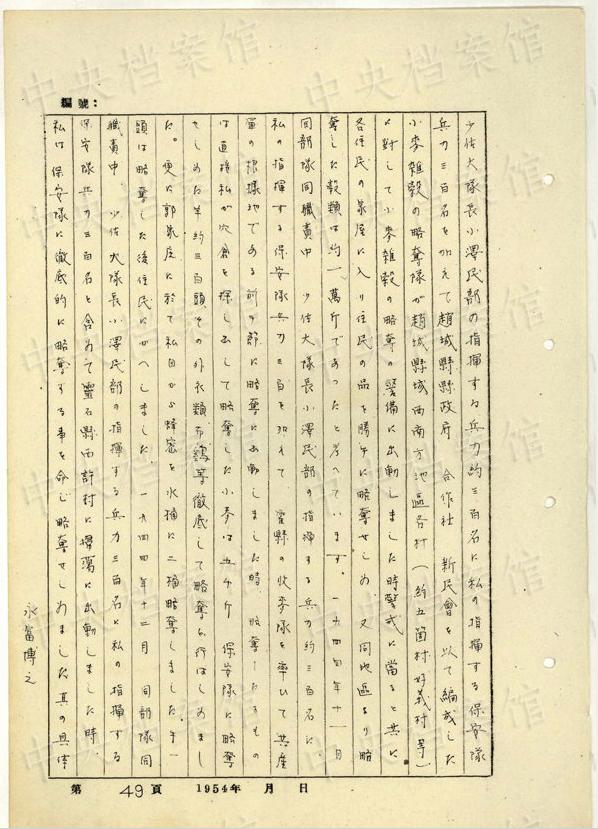 編號：
少佐大隊長小澤民部の指揮する兵力約三百名に私の指揮する保安隊
兵力三百名を加えて趙城縣縣政府　合作社　新民會を以て編成した
小麥雜穀の略奪隊が趙城縣城西南方地區各村（約五箇村好義村等）
に対して小麥雜穀の略奪の警備に出動しました時警戒に當ると共に
各住民の家屋に入り住民の品を勝手に略奪せしめ　又同地區より略
奪した穀類は約一萬斤であったと考へています。一九四四年十一月
同部隊同職責中　少佐大隊長小澤民部の指揮する兵力約三百名に
私の指揮する保安隊兵力三百を加えて　霍縣の收麥隊を率いて共産
軍の根據地である前の郡に略奪に出動しました時　略奪したるもの
は直接私が穴倉を探し出して略奪した小麥は五千斤　保安隊に略奪
せしめた羊約三百頭その外衣類布鷄等徹底して略奪を行はしめまし
た。更に郭家庄に於て私自から蜂蜜を水桶に二桶略奪しました。牛一
頭は略奪した後住民にかへしました。一九四四年十二月　同部隊同
職責中　少佐大隊長小澤民部の指揮する兵力三百名に私の指揮する
保安隊兵力三百名を含めて靈石縣西許村に掃蕩に出動しました時、
私は保安隊に徹底的に略奪する事を命じ略奪せしめました其の具体
永富博之
第 49 頁　1954年　月　日
中央档案馆